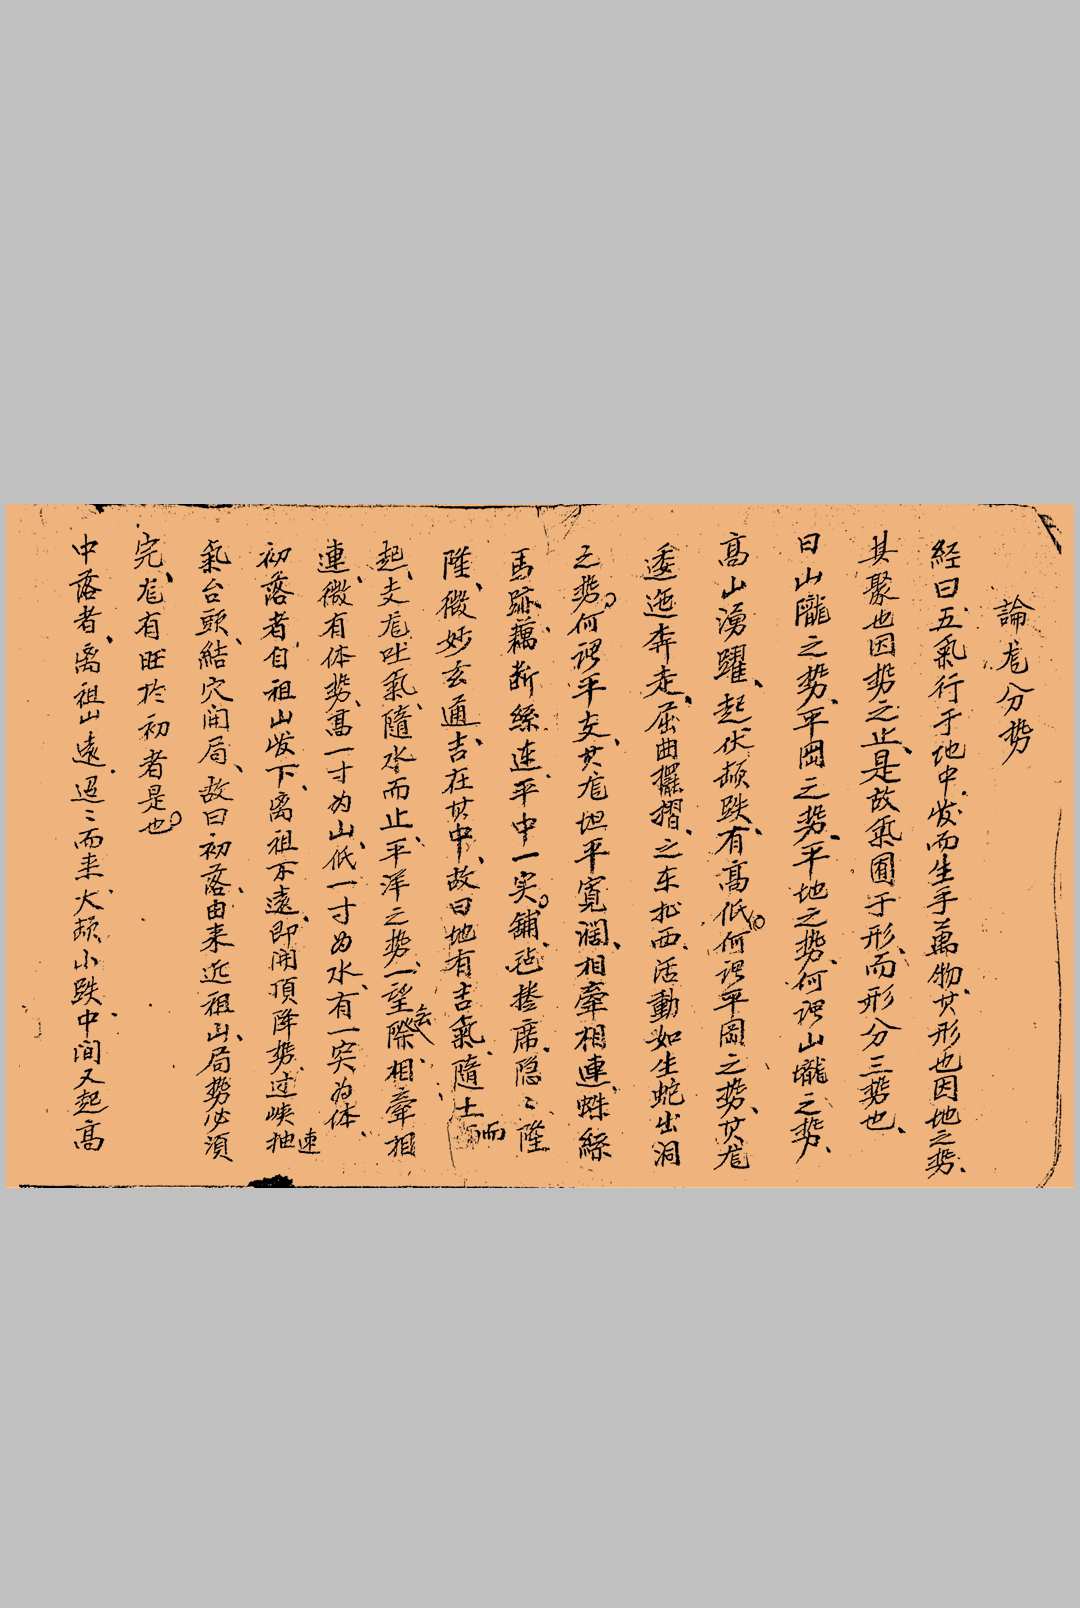 論龙分势
经曰、五氣行于地中、发而生乎萬物、其形也因地之势、
其聚也因势之止、是故氣囿于形、而形分三势也、
曰山隴之势、平岡之势、平地之势、何谓山壠之势、
高山湧躍、起伏颉跌、有高低。何谓平岡之势、其龙
逶迤奔走、屈曲擺摺、之东扯西、活動如生蛇出洞
之势。何谓平支、其龙坦平寬润、相牽相連、蛛絲
馬跡、藕断絲连、平中一突。铺毡捲席、隐〻隆
隆、微妙玄通、吉在其中、故曰地有吉氣、隨土而
起、支龙吐氣、隨水而止、平洋之势、一望際相牵相
連、微有体势、高一寸为山、低一寸为水、有一突为体、
初落者、自祖山发下、离祖不遠、即開頂降势、过峡抽
氣台頭、結穴闹局、故曰初落、由来近祖山、局势必須速
完、龙有旺於初者是也。
中落者、离祖山遠、迢〻而来、大颉小跌、中间又起高